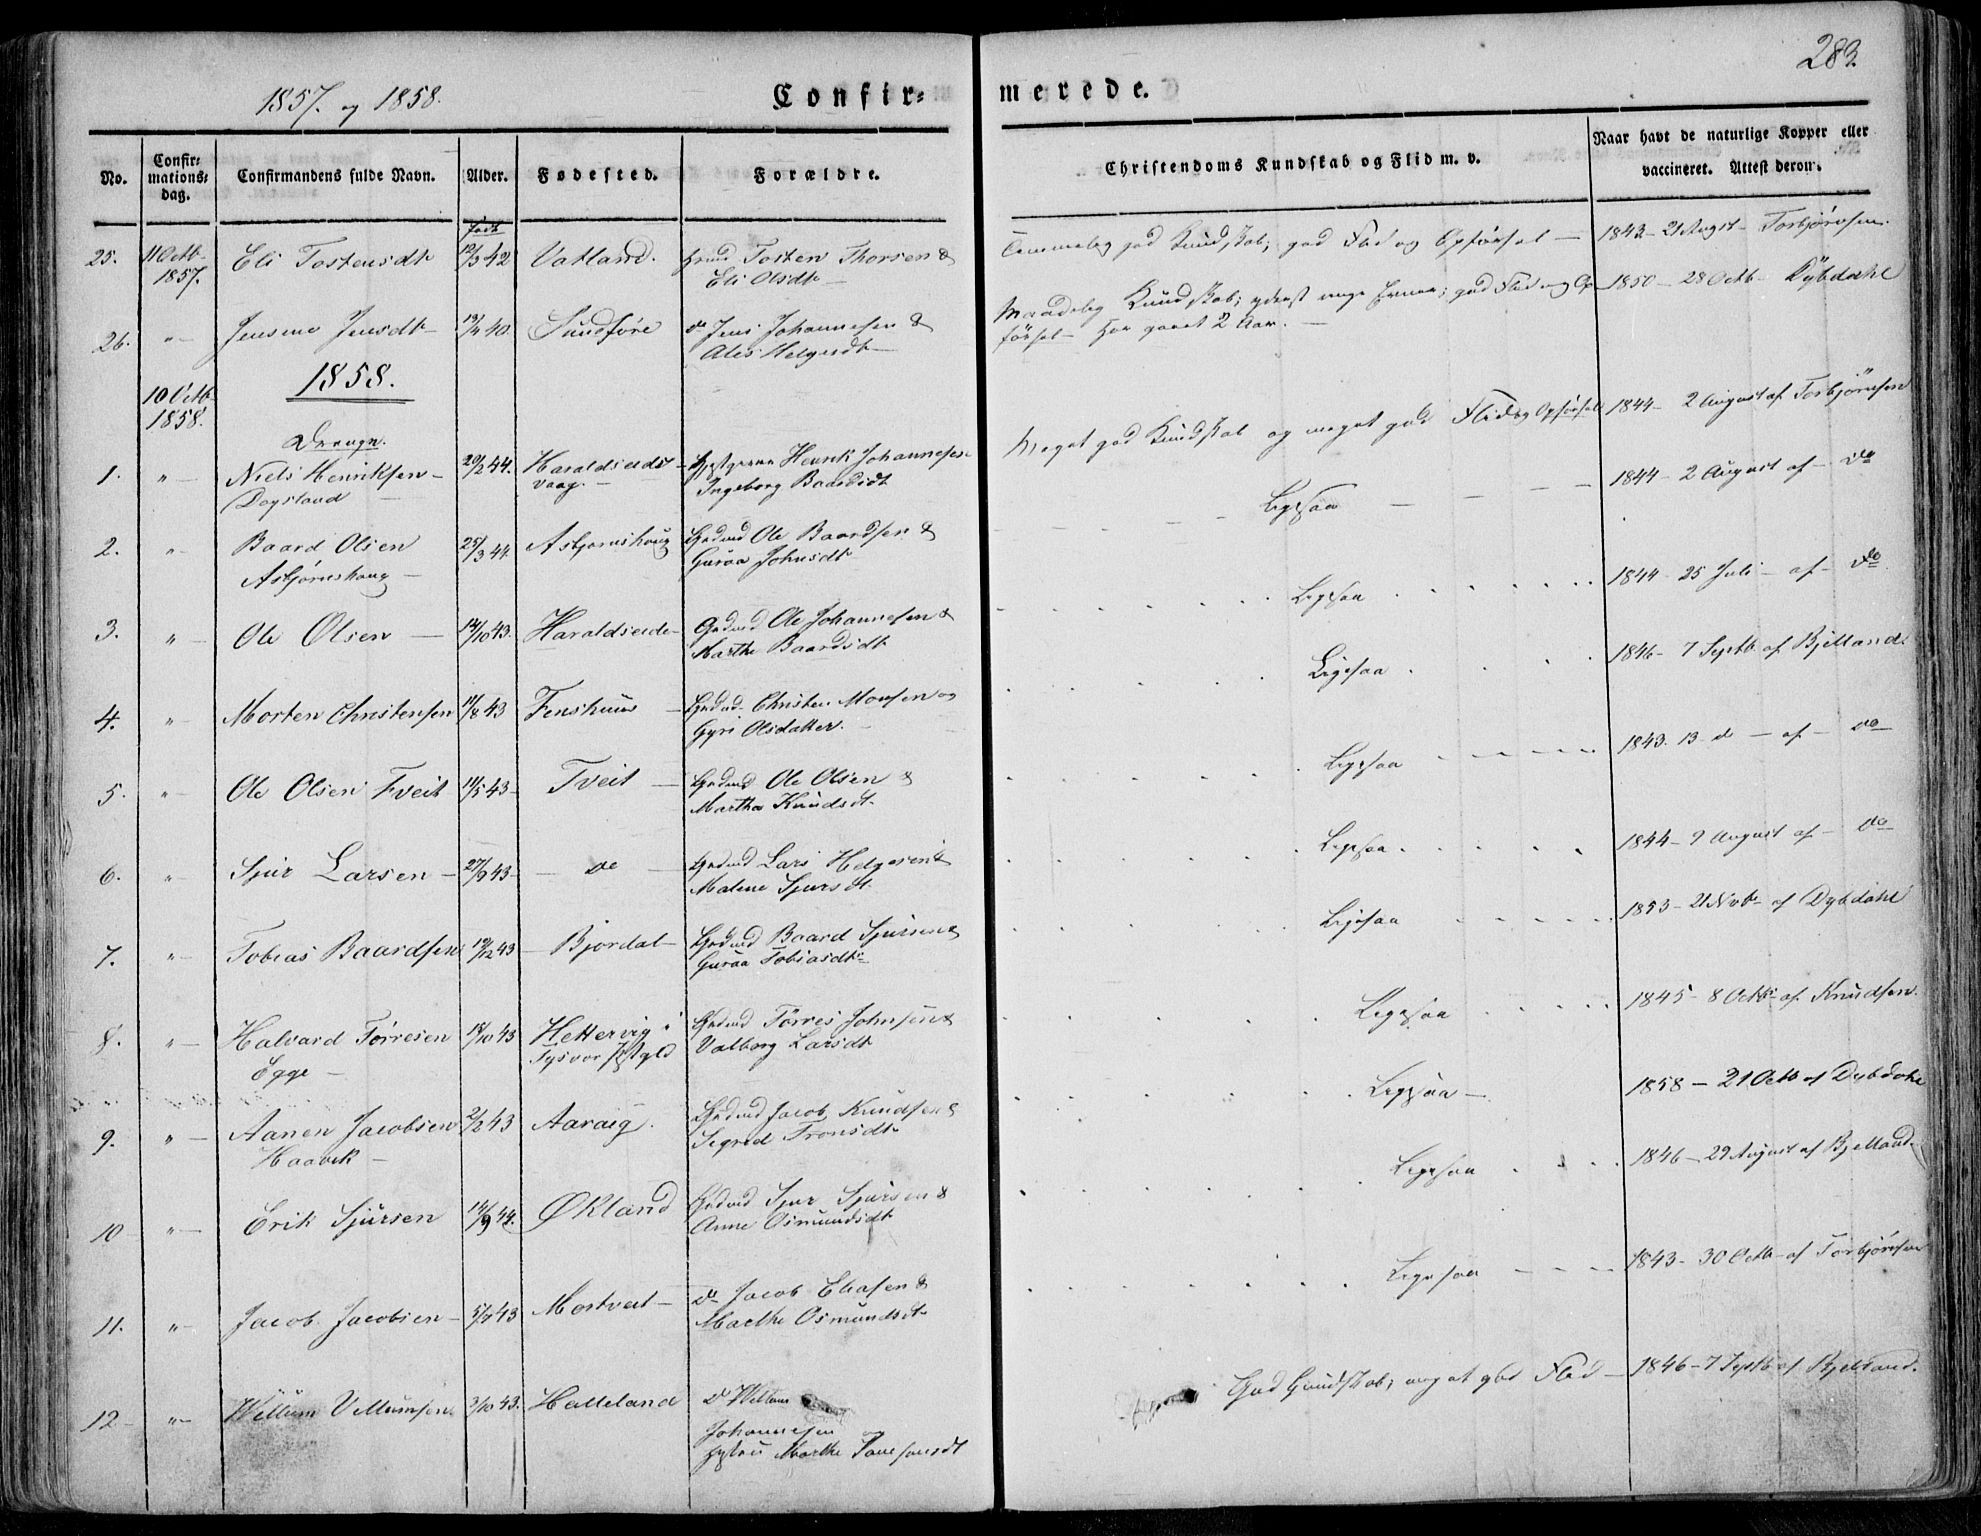 283
1857. og 1858.
Confir-
merede.
No.
Confir-
mations-
dag.
Confirmandens fulde Navn.
Alder.
Fødested.
Forældre.
Christendoms Kundskab og Flid m. v.
Naar havt de naturlige Kopper eller
vaccineret. Attest derom.
født
25. 11 Octb 1857. Eli Tostensdt 12/3 42 Vatland. Tosten Thorsen &
Eli Olsdt
god Kundskab; god Flid og Opførsel 1843 - 21 August - Torbjørnsen.
26. " Jensine Jensdt 40 Sundføre do Jens Johannesen &
Ales Helgesdt
Maadelig Kundskab; yderst ringe Evner; god Flid og Op-
førsel - Har gaaet 2 Aar. 1850 - 28 Octb Dybdahl
1858.
10 Octb
1858.
Drenge.
1. " Niels Henriksen 20/2 44. Haraldseids- Henrik Johannesen
Dagsland vaag. Ingeborg Baardsdt
Meget god Kundskab og meget god Flid og Opførsel 1844 - 2 August af Torbjørnsen
2. " Baard Olsen 25/3 44. Asbjørnshoug Grdmd Ole Baardsen &
Asbjørnshoug Guroa Johnsdt
Ligesaa 1844 - 2 August af do
3. " Ole Olsen 14/10 43. Haraldseide Grdmd Ole Johannesen &
Marthe Baardsdt
Ligesaa 1844 - 25 Juli - af - do
4. " Morten Christensen 11/8 43 Fenshuus Grdmd Christen Monsen og
Gyri Olsdatter.
Ligesaa 1846 - 7 Septb af Bjelland.
5. " Ole Olsen Tveit 11/5 43 Tveit Grdmd Ole Olsen &
Martha Knudsdt.
Ligesaa 1843. 13 do - af - do
6. " Sjur Larsen 27/9 43 do Grdmd Lars Helgesen &
Malene Sjursdt.
Ligesaa 1844 - 9 August af - do
7. " Tobias Baardsen 19/12 43 Bjordal Grdmd Baard Sjursen &
Guroa Tobiasdt
Ligesaa 1853 - 21 Novb af Dybdahl
8. " Halvard Tørresen 18/10 43 Hettervig i Grdmd Tørres Johnsen &
Egge Tysvær Valborg Larsdt
Ligesaa 1845 - 8 Octb af Knudsen.
9. " Aanen Jacobsen 2/2 43 Aaraig. Grdmd Jacob Knudsen &
Haavik Segred Tronsdt
Ligesaa 1858 - 21 Octb af Dybdahl
10 " Erik Sjursen 14/9 44. Økland Grdmd Sjur Sjursen &
Anne Osmundsdt
Ligesaa 1846 - 29 August af Bjelland
11. " Jacob Jacobsen 43 Mortveit do Jacob Eliasen &
Marthe Osmundsdt
Ligesaa 1843 - 30 Octb af Torbjørnsen
12 " Villum Villumsen 3/10 43. Halleland do Willum
Johannesen
Marthe
God Kundskab; meget god Flid 1846 - 7 Septb af Bjelland.